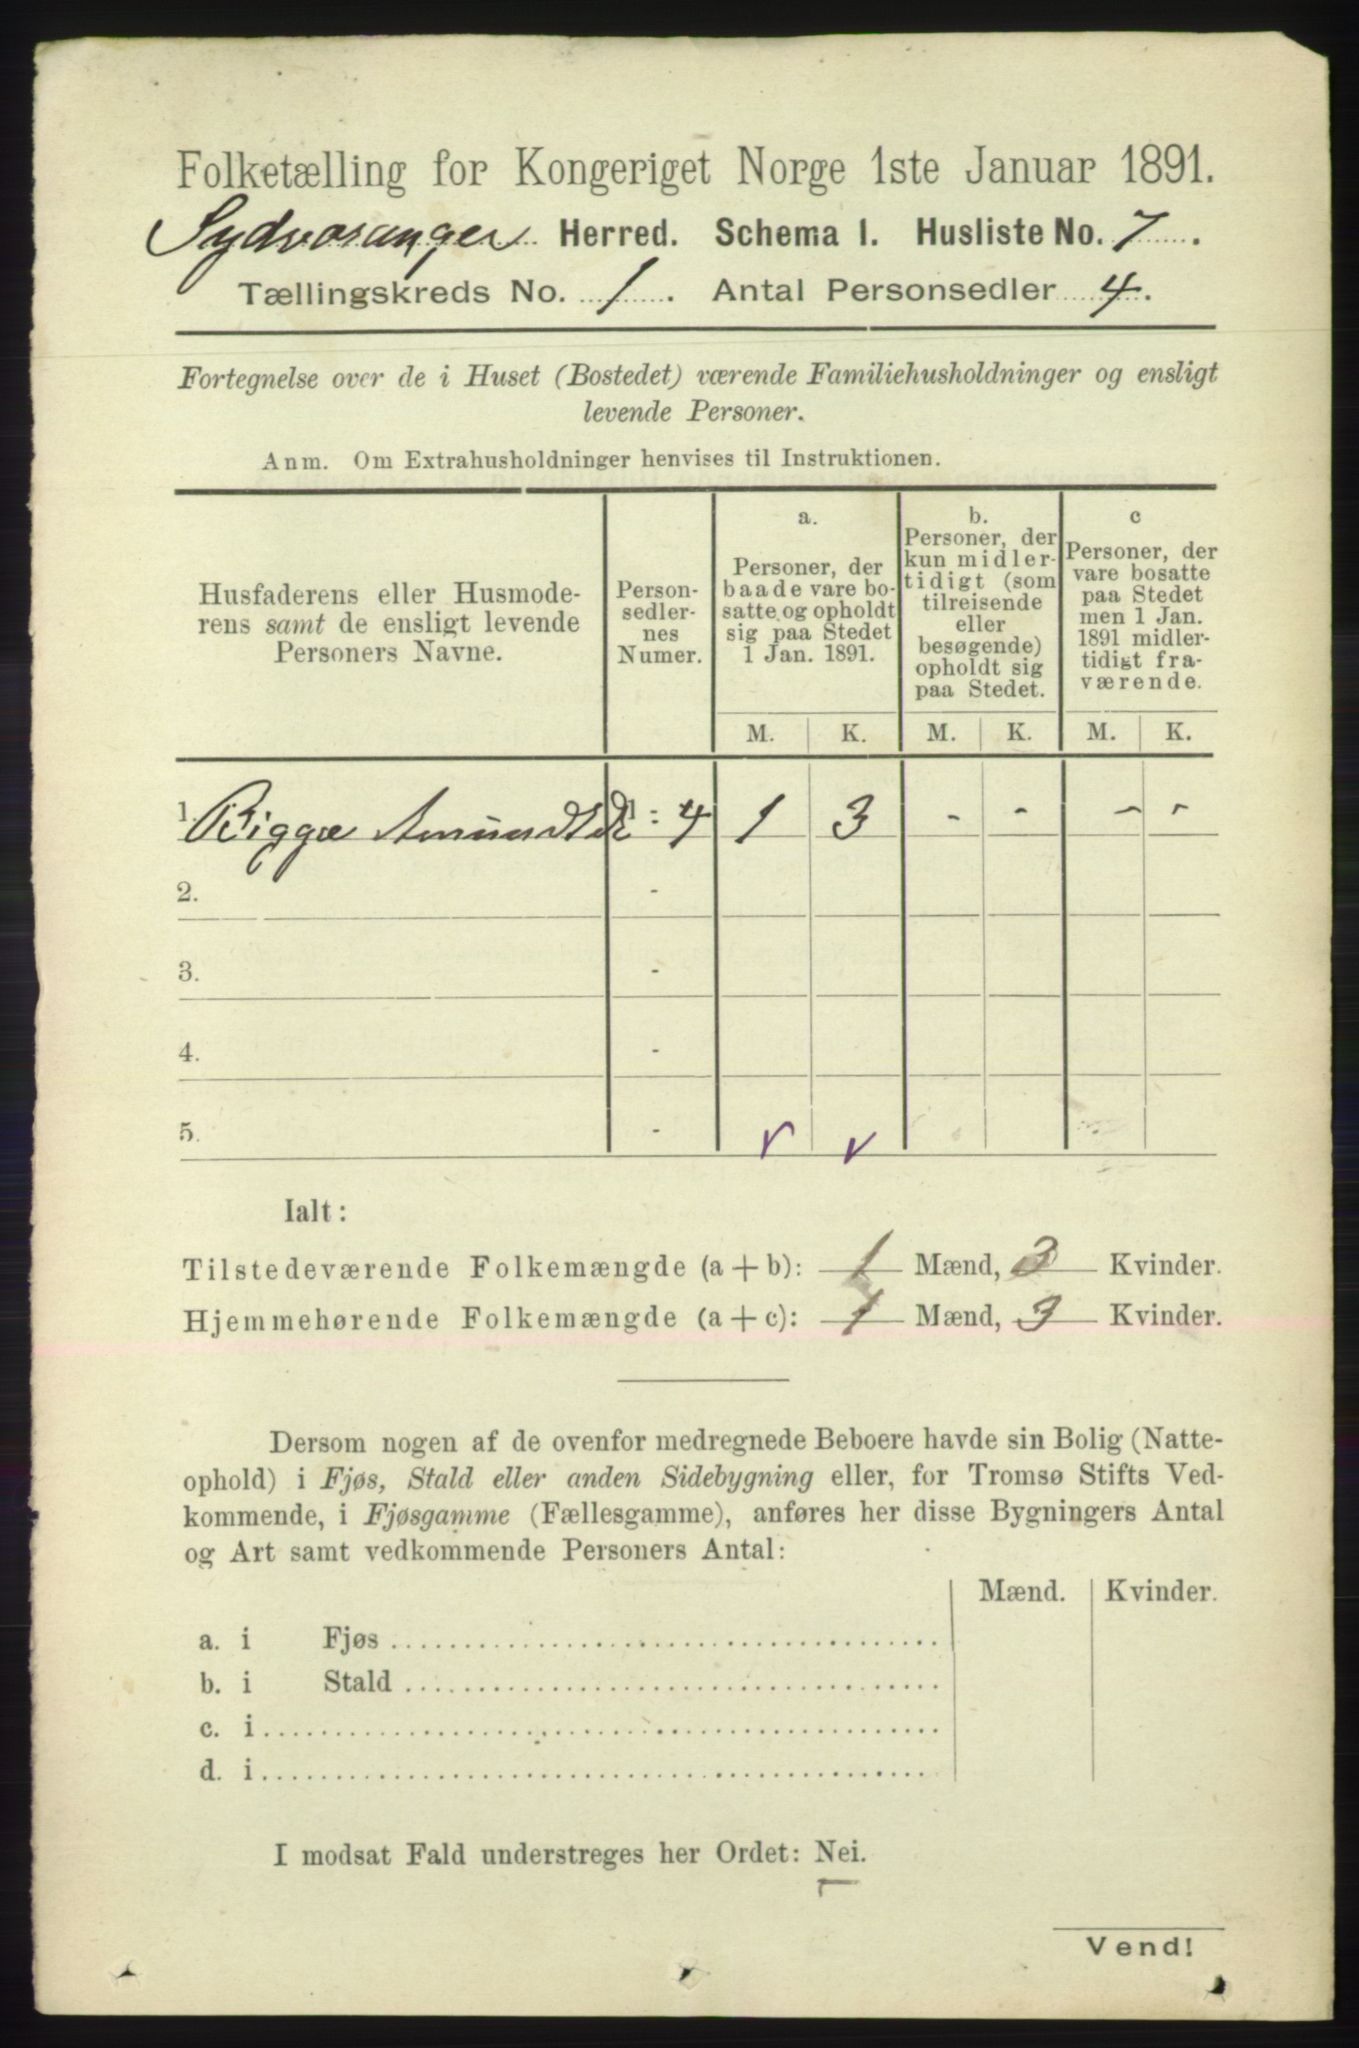 Folketælling for Kongeriget Norge 1ste Januar 1891.
Sydvaranger Herred. Schema 1. Husliste No. 7.
Tællingskreds No. 1. Antal Personsedler 4.
Fortegnelse over de i Huset (Bostedet) værende Familiehusholdninger og ensligt
levende Personer.
Anm. Om Extrahusholdninger henvises til Instruktionen.
Husfaderens eller Husmode-
rens samt de ensligt levende
Personers Navne.
Person-
sedler-
nes
Numer.
a.
Personer, der
baade vare bo-
satte og opholdt
sig paa Stedet
1 Jan. 1891.
b.
Personer, der
kun midler-
tidigt (som
tilreisende
eller
besøgende)
opholdt sig
paa Stedet.
c
Personer, der
vare bosatte
paa Stedet
men 1 Jan.
1891 midler-
tidigt fra-
værende.
M. K. M. K. M. K.
1. Bigga Amundsd. - 4 1 3 - - - -
2. -
3. -
4. -
5. -
Ialt:
Tilstedeværende Folkemængde (a + b): 1 Mænd, 3 Kvinder.
Hjemmehørende Folkemængde (a + c): 1 Mænd, 3 Kvinder.
Dersom nogen af de ovenfor medregnede Beboere havde sin Bolig (Natte-
ophold) i Fjøs, Stald eller anden Sidebygning eller, for Tromsø Stifts Ved-
kommende, i Fjøsgamme (Fællesgamme), anføres her disse Bygningers Antal
og Art samt vedkommende Personers Antal:
Mænd. Kvinder.
a. i Fjøs
b. i Stald
c. i
d. i
I modsat Fald understreges her Ordet: Nei.
Vend!